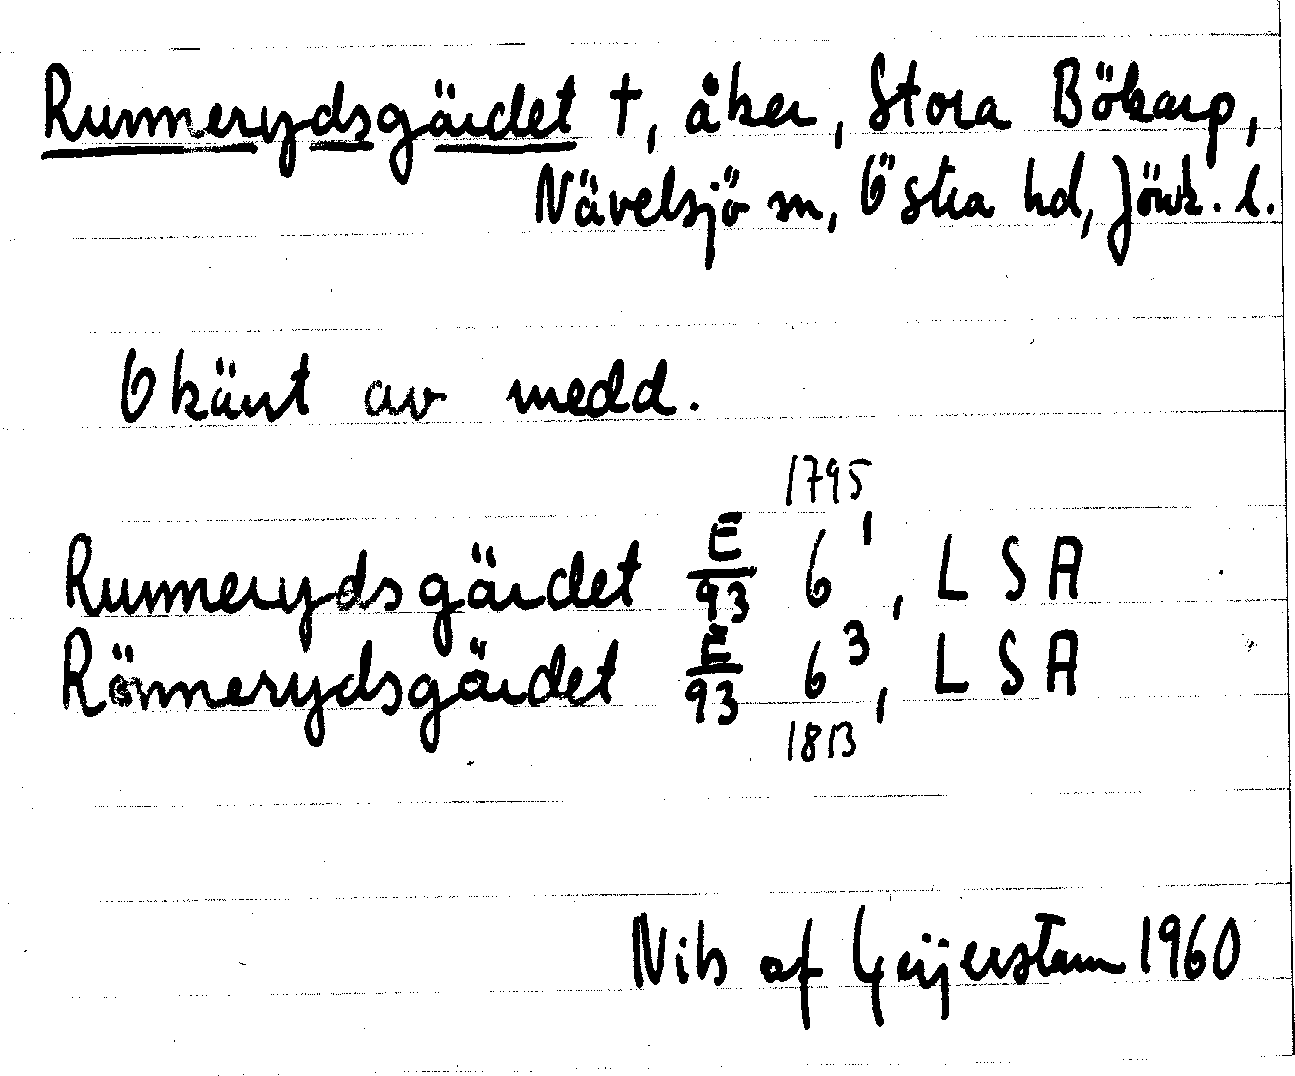 Runnerydsgärdet †, åker, Stora Bökarp,
Nävelsjö sn, Östra hd, Jönk. l.
Okänt av medd.
1795
Runnerydsgärdet E/93 6¹, LSA
Rönnerydsgärdet E/93 6³, LSA
1813
Nils af Geijerstam 1960